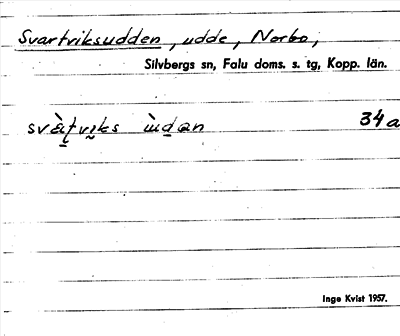 Svartviksudden, udde, Norbo,
Silvbergs sn, Falu doms. s. tg, Kopp. län.
svàt̠vi̮ks ùd̠an 34a
Inge Kvist 1957.